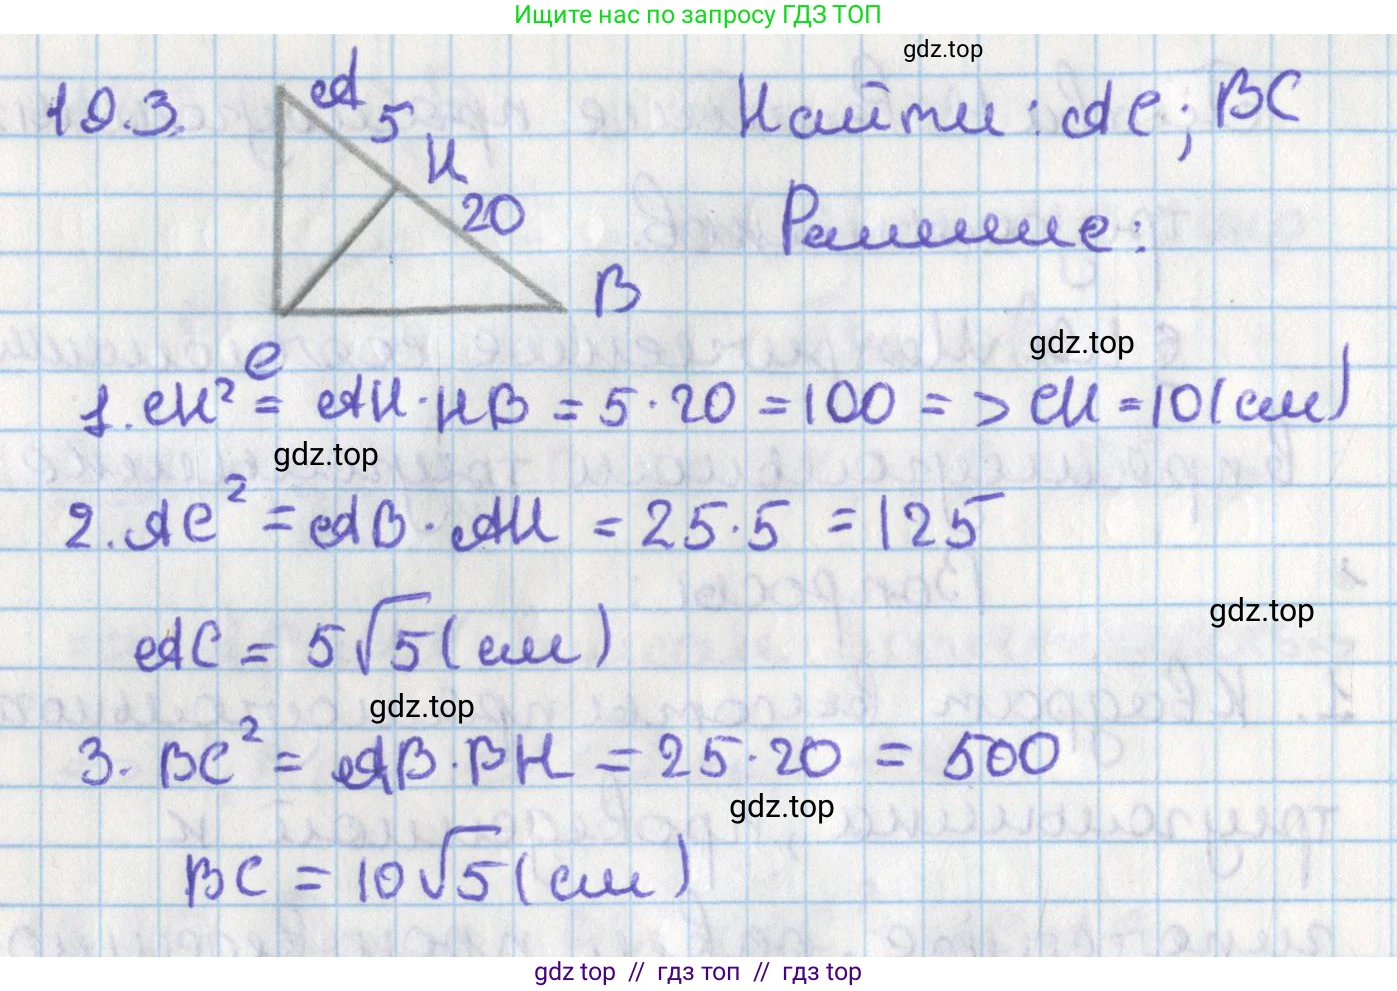 Ищите нас по запросу ГДЗ ТОП
gdz.top
19.3.
A
5
H
20
B
C
Найти: AC; BC
Решение:
gdz.top
1. CH² = AH · HB = 5 · 20 = 100 => CH = 10 (см)
gdz.top
2. AC² = AB · AH = 25 · 5 = 125
gdz.top
AC = 5√5 (см)
gdz.top
3. BC² = AB · BH = 25 · 20 = 500
gdz.top
BC = 10√5 (см)
gdz top // гдз топ // гдз top